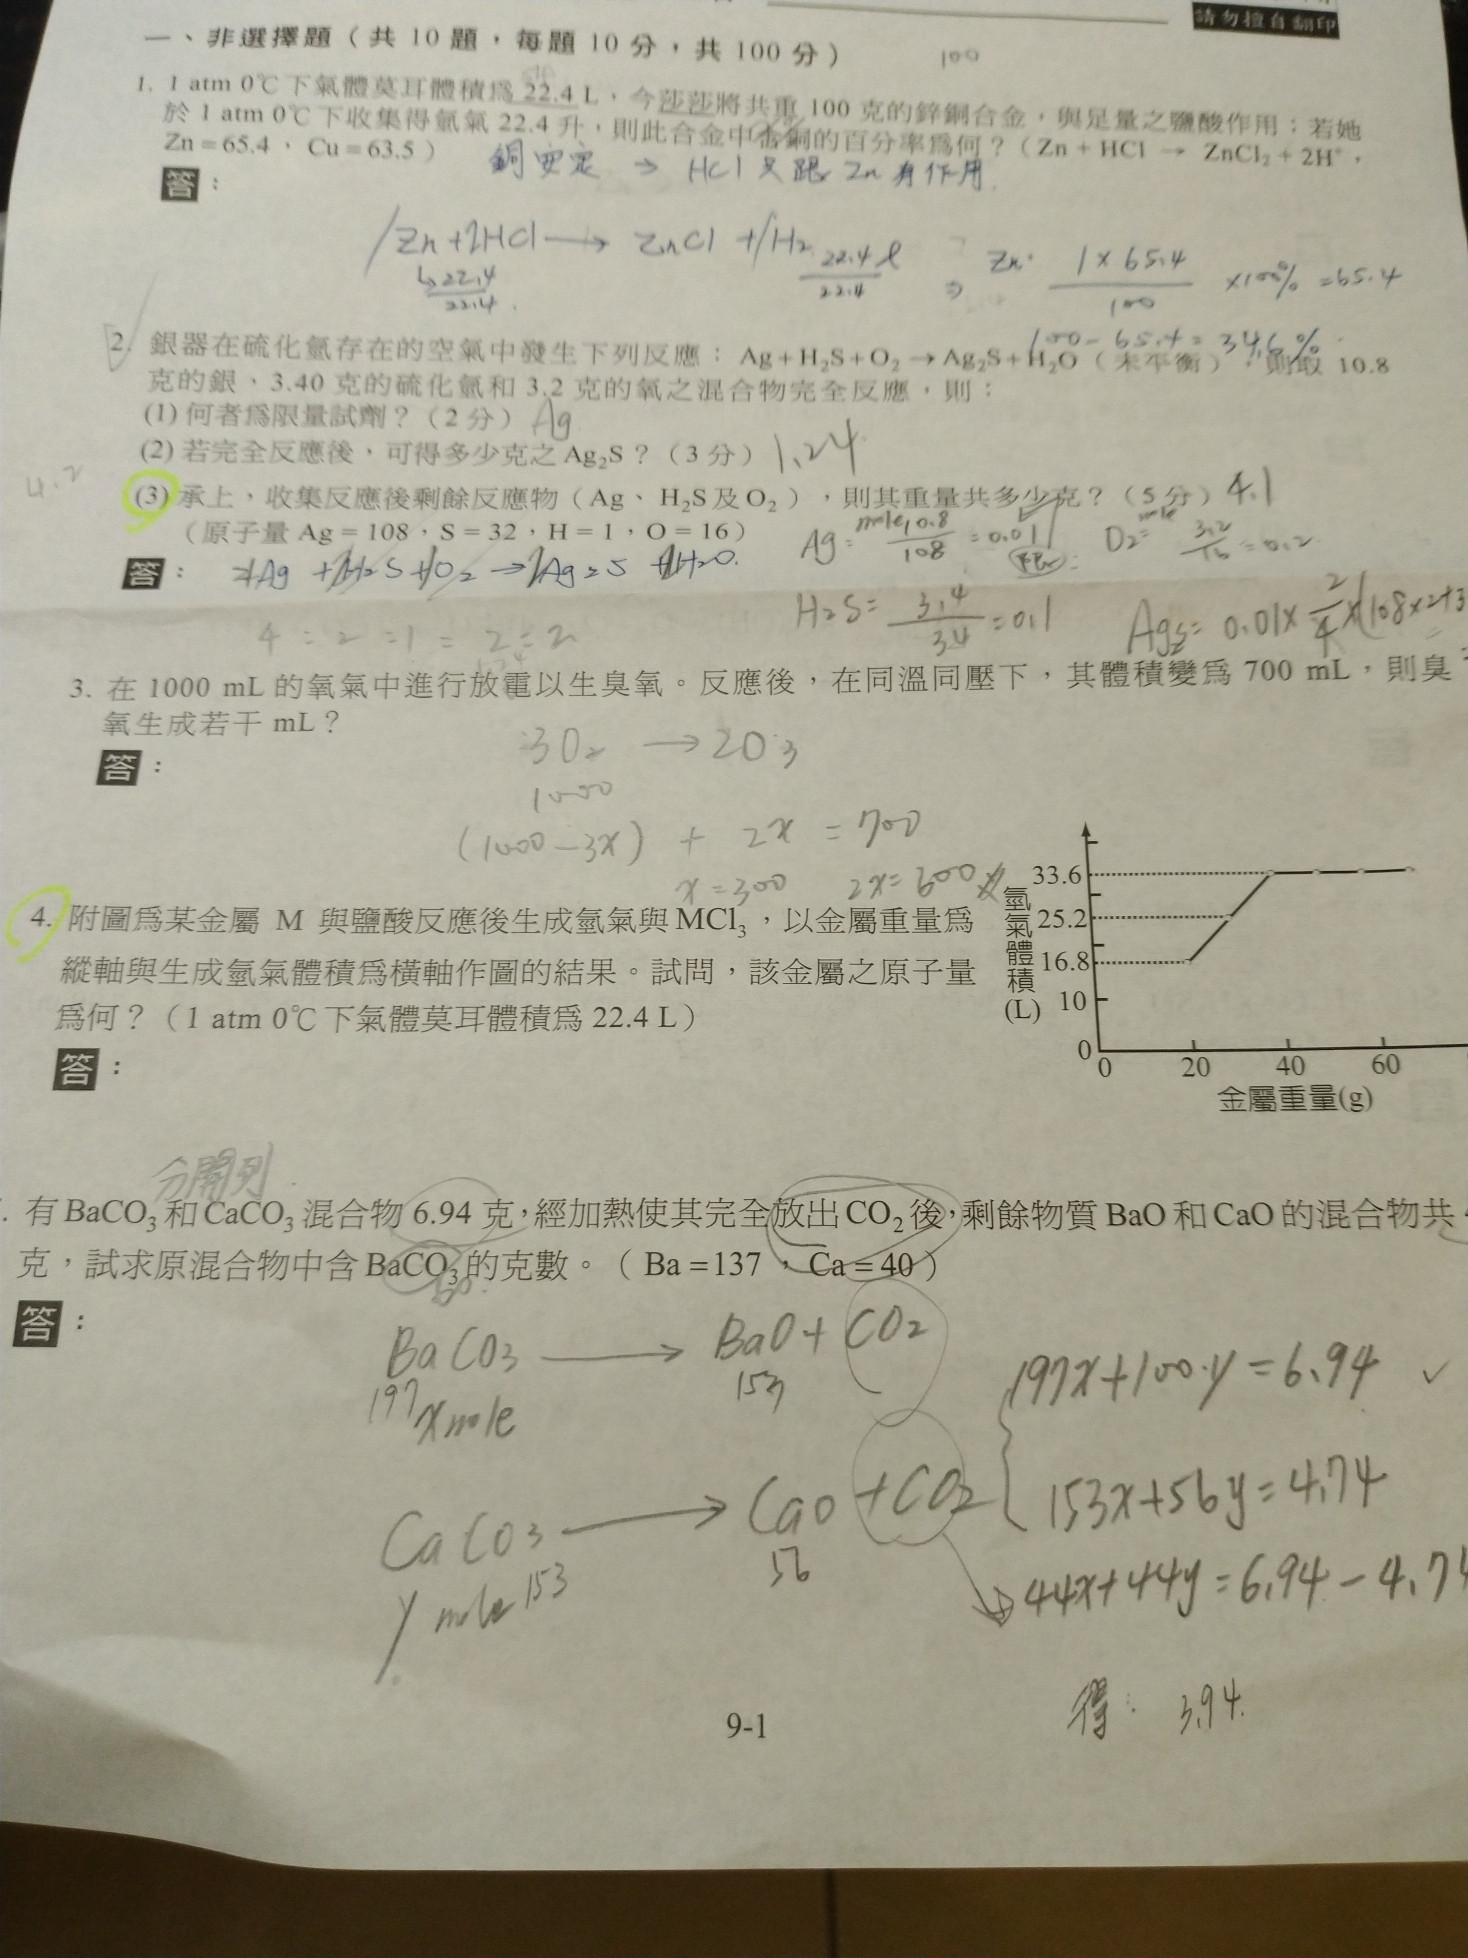 請勿擅自翻印
一、非選擇題（共 10 題，每題 10 分，共 100 分）
100
1. 1 atm 0℃下氣體莫耳體積為 22.4 L，今莎莎將共重 100 克的鋅銅合金，與足量之鹽酸作用；若她
於 1 atm 0℃下收集得氫氣 22.4 升，則此合金中含銅的百分率為何？（Zn + HCl → ZnCl₂ + 2H⁺，
Zn = 65.4，Cu = 63.5）
銅安定 → HCl 只跟 Zn 有作用
答：
1Zn + 2HCl → ZnCl + 1H₂
22.4/22.4
22.4 l/22.4
⇒ Zn: 1×65.4/100 ×100% = 65.4
100 - 65.4 = 34.6%
2. 銀器在硫化氫存在的空氣中發生下列反應：Ag + H₂S + O₂ → Ag₂S + H₂O（未平衡），則取 10.8
克的銀、3.40 克的硫化氫和 3.2 克的氧之混合物完全反應，則：
(1) 何者為限量試劑？（2 分）Ag
(2) 若完全反應後，可得多少克之 Ag₂S？（3 分）1.24
4.2
(3) 承上，收集反應後剩餘反應物（Ag、H₂S 及 O₂），則其重量共多少克？（5 分）4.1
（原子量 Ag = 108，S = 32，H = 1，O = 16）
Ag = mole 10.8/108 = 0.01
O₂ = mole 3.2/16 = 0.2
答：4Ag + 2H₂S + 1O₂ → 2Ag₂S + 2H₂O
4 : 2 : 1 = 2 : 2
H₂S = 3.4/34 = 0.1
Ag₂S = 0.01× 2/4 ×(108×2+3
3. 在 1000 mL 的氧氣中進行放電以生臭氧。反應後，在同溫同壓下，其體積變為 700 mL，則臭
氧生成若干 mL？
3O₂ → 2O₃
答：
1000
(1000 - 3x) + 2x = 700
x = 300 2x = 600
4. 附圖為某金屬 M 與鹽酸反應後生成氫氣與 MCl₃，以金屬重量為
縱軸與生成氫氣體積為橫軸作圖的結果。試問，該金屬之原子量
為何？（1 atm 0℃下氣體莫耳體積為 22.4 L）
答：
氫氣體積(L)
33.6
25.2
16.8
10
0
0 20 40 60
金屬重量(g)
分開列
. 有 BaCO₃ 和 CaCO₃ 混合物 6.94 克，經加熱使其完全放出 CO₂ 後，剩餘物質 BaO 和 CaO 的混合物共
克，試求原混合物中含 BaCO₃ 的克數。（Ba = 137，Ca = 40）
答：
BaCO₃ → BaO + CO₂
197 x mole 153
197x + 100y = 6.94 ✓
CaCO₃ → CaO + CO₂
y mole 153 56
153x + 56y = 4.74
44x + 44y = 6.94 - 4.74
得：3.94
9-1